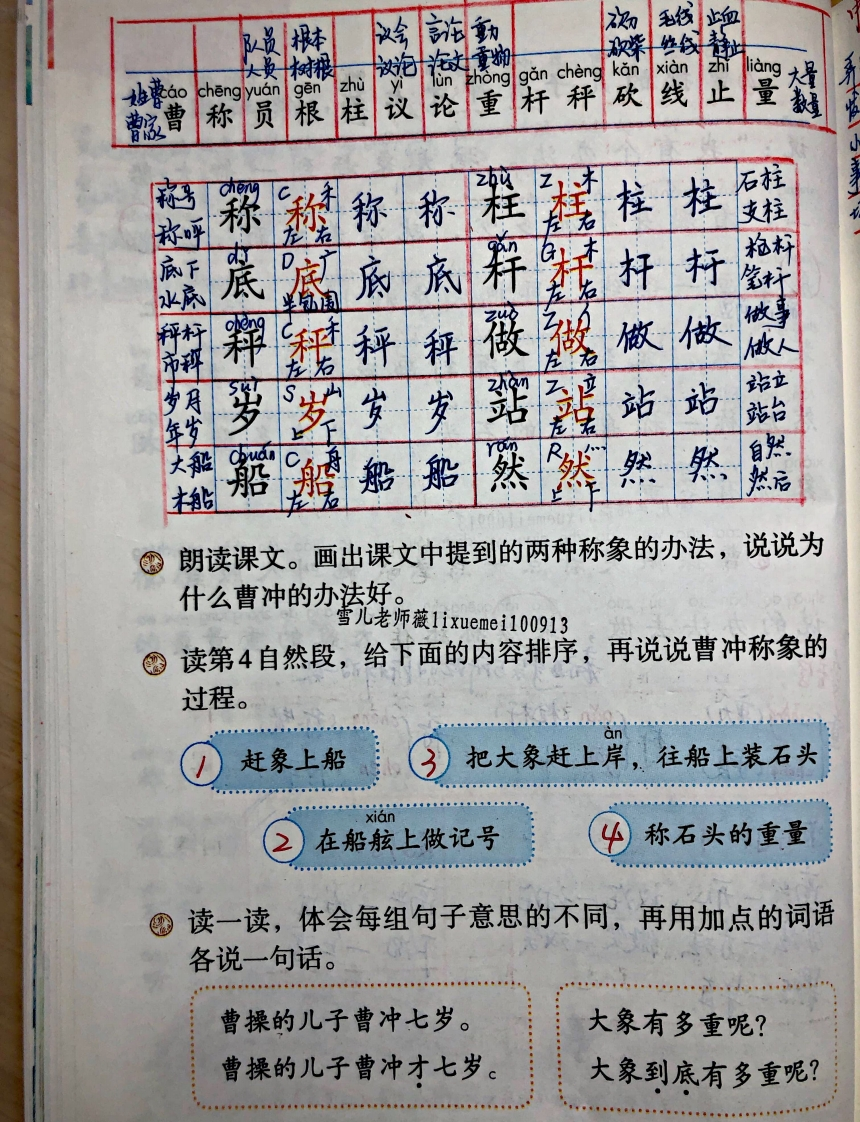 队员 根本 议会 言论 動 砍刀 毛线 止血
人员 树根 议论 论文 重物 砍柴 丝线 静止
cáo chēng yuán gēn zhù yì lùn zhòng gǎn chèng kǎn xiàn zhǐ liàng
姓曹 曹 称 员 根 柱 议 论 重 杆 秤 砍 线 止 量 大量
曹家 数量
称号 chēng 称 C 称 禾 左 右 称 称 zhù 柱 Z 柱 木 左 右 柱 柱 石柱
称呼 支柱
底下 dǐ 底 D 底 广 半包围 底 底 gǎn 杆 G 杆 木 左 右 杆 杆 枪杆
水底 笔杆
秤杆 chèng 秤 C 秤 禾 左 右 秤 秤 zuò 做 Z 做 亻 左 右 做 做 做事
市秤 做人
岁月 suì 岁 S 岁 山 上 下 岁 岁 zhàn 站 Z 站 立 左 右 站 站 站立
年岁 站台
大船 chuán 船 C 船 舟 左 右 船 船 rán 然 R 然 灬 上 下 然 然 自然
木船 然后
朗读课文。画出课文中提到的两种称象的办法，说说为
什么曹冲的办法好。
雪儿老师薇lixuemei100913
读第4自然段，给下面的内容排序，再说说曹冲称象的
过程。
àn
1 赶象上船 3 把大象赶上岸，往船上装石头
xián
2 在船舷上做记号 4 称石头的重量
读一读，体会每组句子意思的不同，再用加点的词语
各说一句话。
曹操的儿子曹冲七岁。
曹操的儿子曹冲才七岁。
大象有多重呢？
大象到底有多重呢？